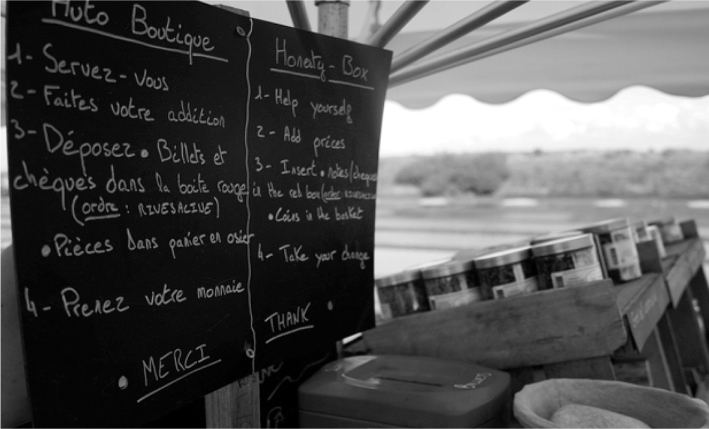 Auto Boutique
1- Servez-vous
2- Faites votre addition
3- Déposez • Billets et
chèques dans la boite rouge
(ordre : RIVESALIVE)
• Pièces dans panier en osier
4- Prenez votre monnaie
• MERCI
Honesty-Box
1- Help yourself
2- Add prices
3- Insert • notes/cheques
in the red box (order: RIVESALIVE
• Coins in the basket
4- Take your change
THANK •